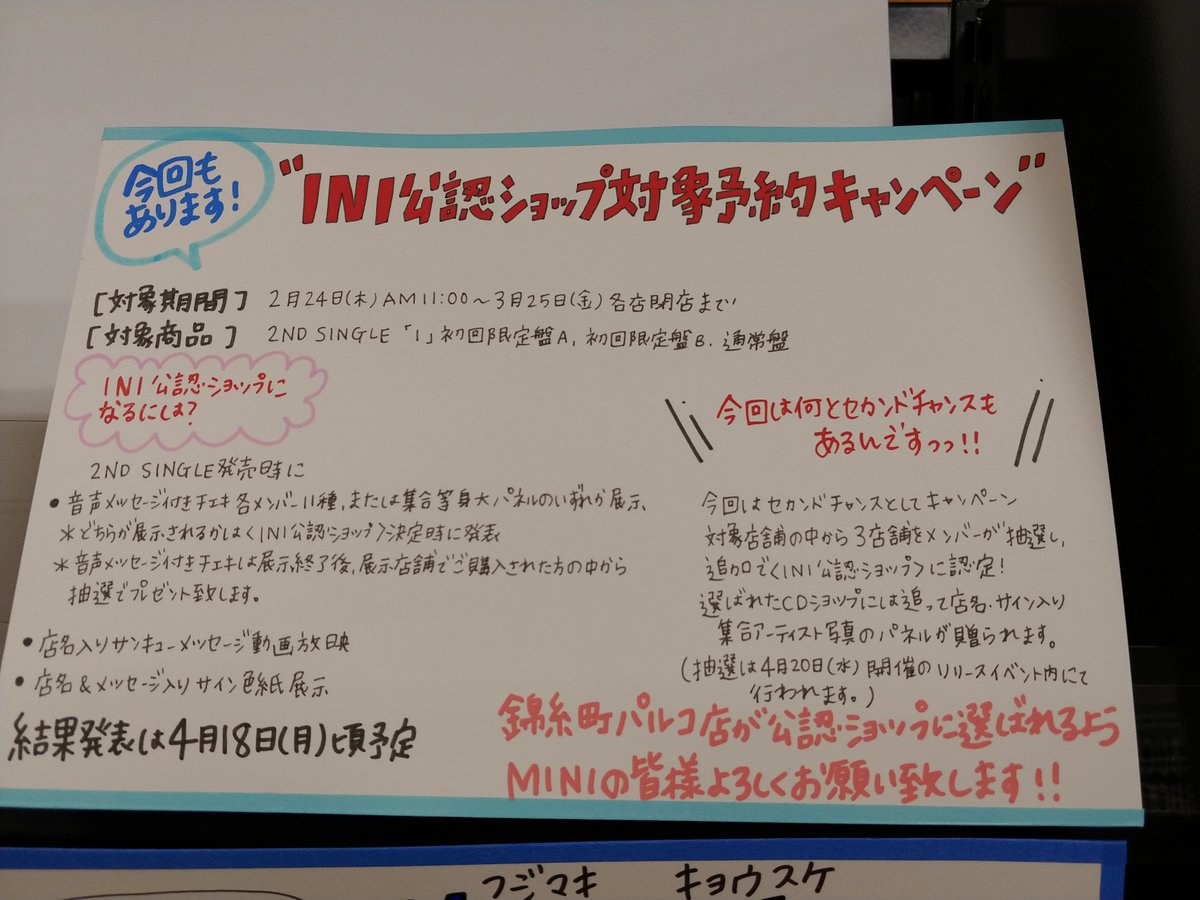 今回も
あります!
"INI公認ショップ対象予約キャンペーン"
[対象期間] 2月24日(木)AM11:00～3月25日(金)各店閉店まで
[対象商品] 2ND SINGLE「I」初回限定盤A, 初回限定盤B. 通常盤
INI公認ショップに
なるには?
2ND SINGLE発売時に
• 音声メッセージ付きチェキ各メンバー11種,または集合等身大パネルのいずれか展示、
＊どちらが展示されるかは〈INI公認ショップ〉決定時に発表
＊音声メッセージ付きチェキは展示終了後,展示店舗でご購入された方の中から
抽選でプレゼント致します。
• 店名入りサンキューメッセージ動画放映
• 店名&メッセージ入りサイン色紙展示
結果発表は4月18日(月)頃予定
今回は何とセカンドチャンスも
あるんですっっ!!
今回はセカンドチャンスとしてキャンペーン
対象店舗の中から3店舗をメンバーが抽選し,
追加で〈INI公認ショップ〉に認定!
選ばれたCDショップには追って店名・サイン入り
集合アーティスト写真のパネルが贈られます。
(抽選は4月20日(水)開催のリリースイベント内にて
行われます。)
錦糸町パルコ店が公認ショップに選ばれるよう
MINIの皆様よろしくお願い致します!!
フジマキ キョウスケ